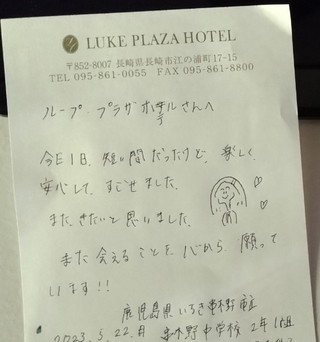 LUKE PLAZA HOTEL
〒852-8007 長崎県長崎市江の浦町17-15
TEL 095-861-0055 FAX 095-861-8800
ループ プラザホテルさんへ
今日1日、短い間だったけど、楽しく、
安心して、すごせました。
また、きたいと思いました。
また 会えることを、心から、願って
います!!
鹿児島県 いちき串木野市立
2023.5.22.月 串木野中学校 2年1組